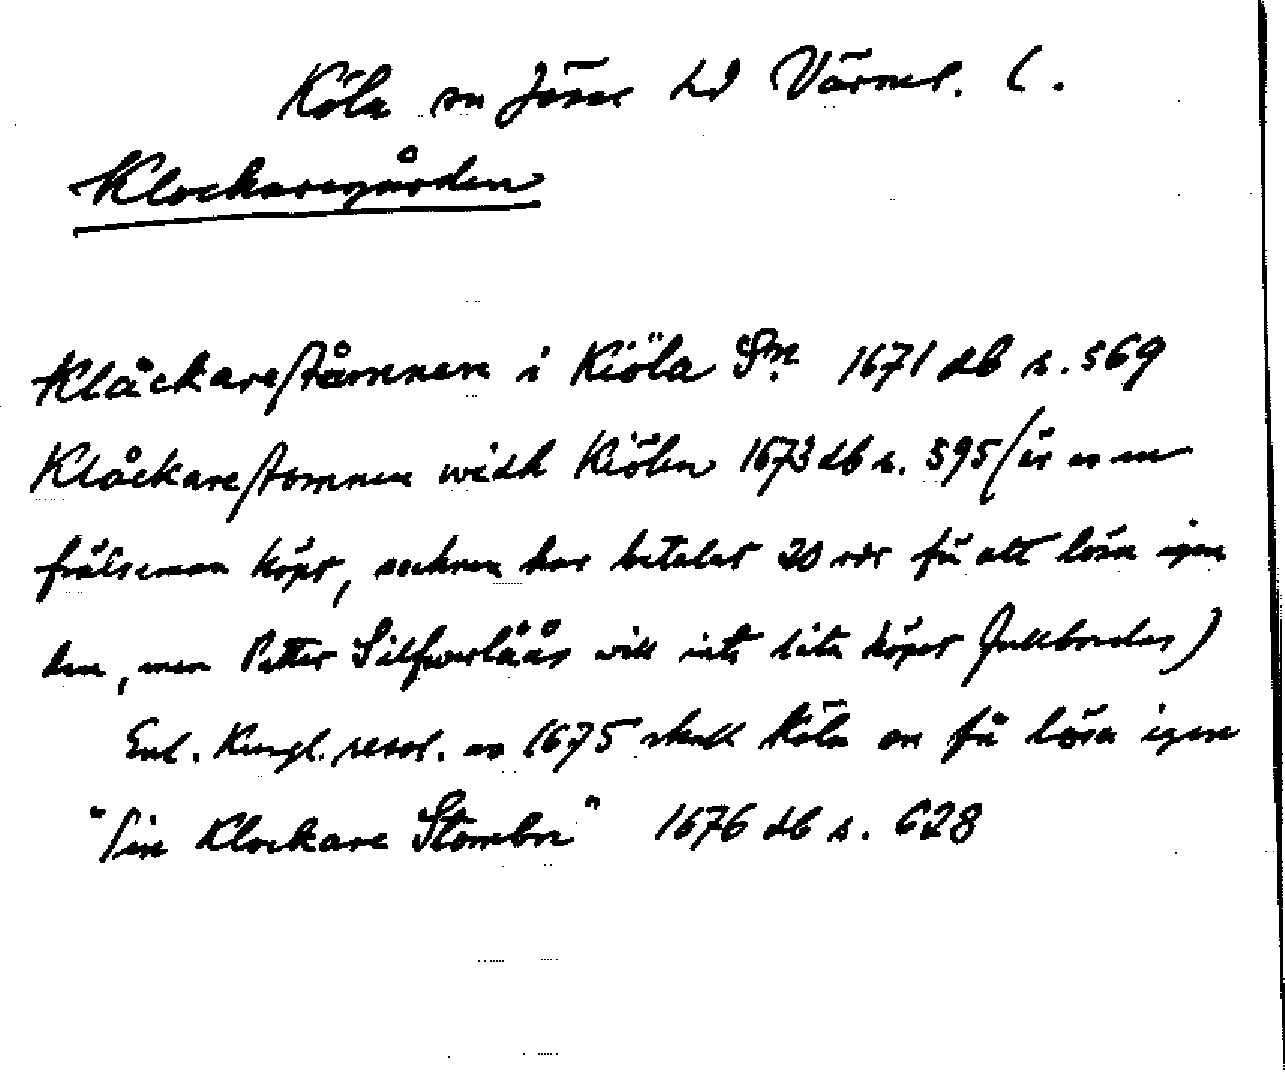 Köla sn Jösse hd Värml. l.
Klockaregården
Klåckareståmnen i Kiöla Sn 1671 db s. 569
Klåckarestomnen widh Kiölen 1673 db s. 595 (är av en
frälseman köpt, socknen har betalat 20 rdr för att lösa igen
den, men Petter Silfwerlåås vill inte låta köpet fullbordas)
Enl. Kungl. resol. av 1675 skall Köla sn få lösa igen
"sin Klockare Stombn" 1676 db s. 628